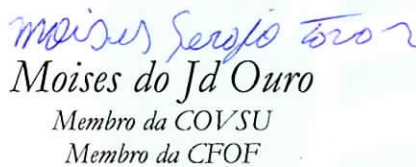 Moises Sergio
Moises do Jd Ouro
Membro da COVSU
Membro da CFOF